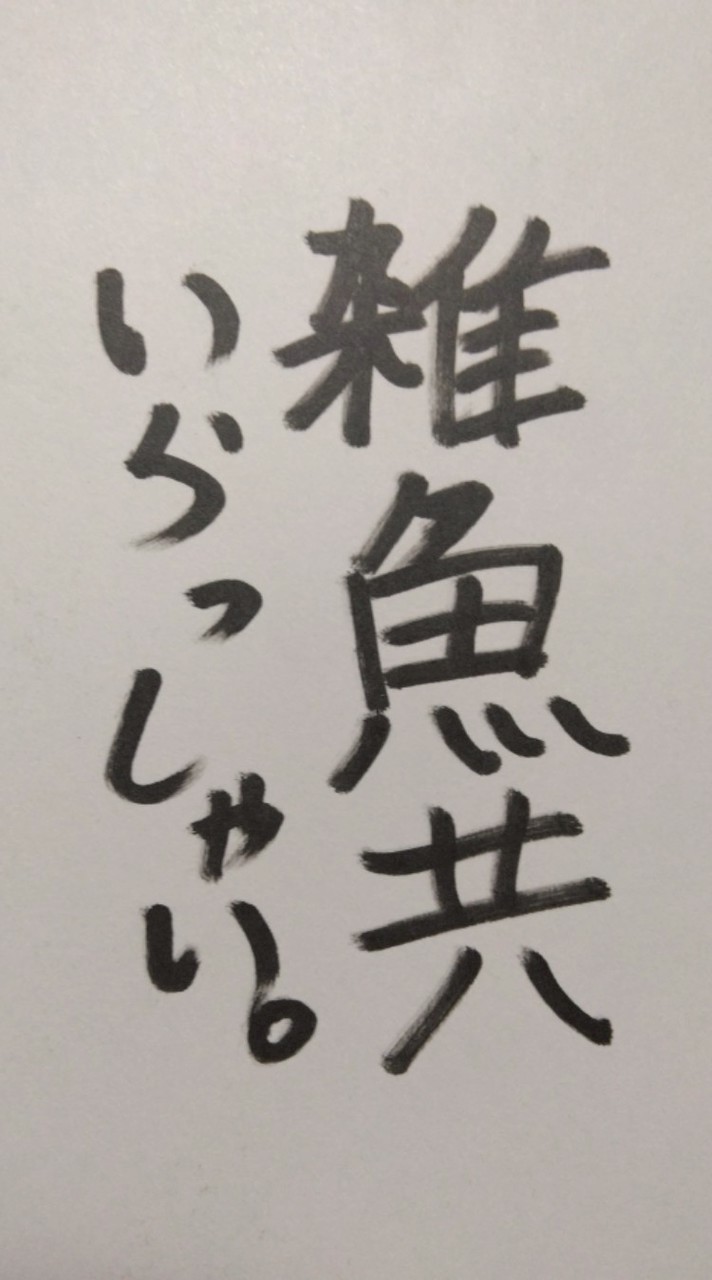 雑魚共
いらっしゃい。